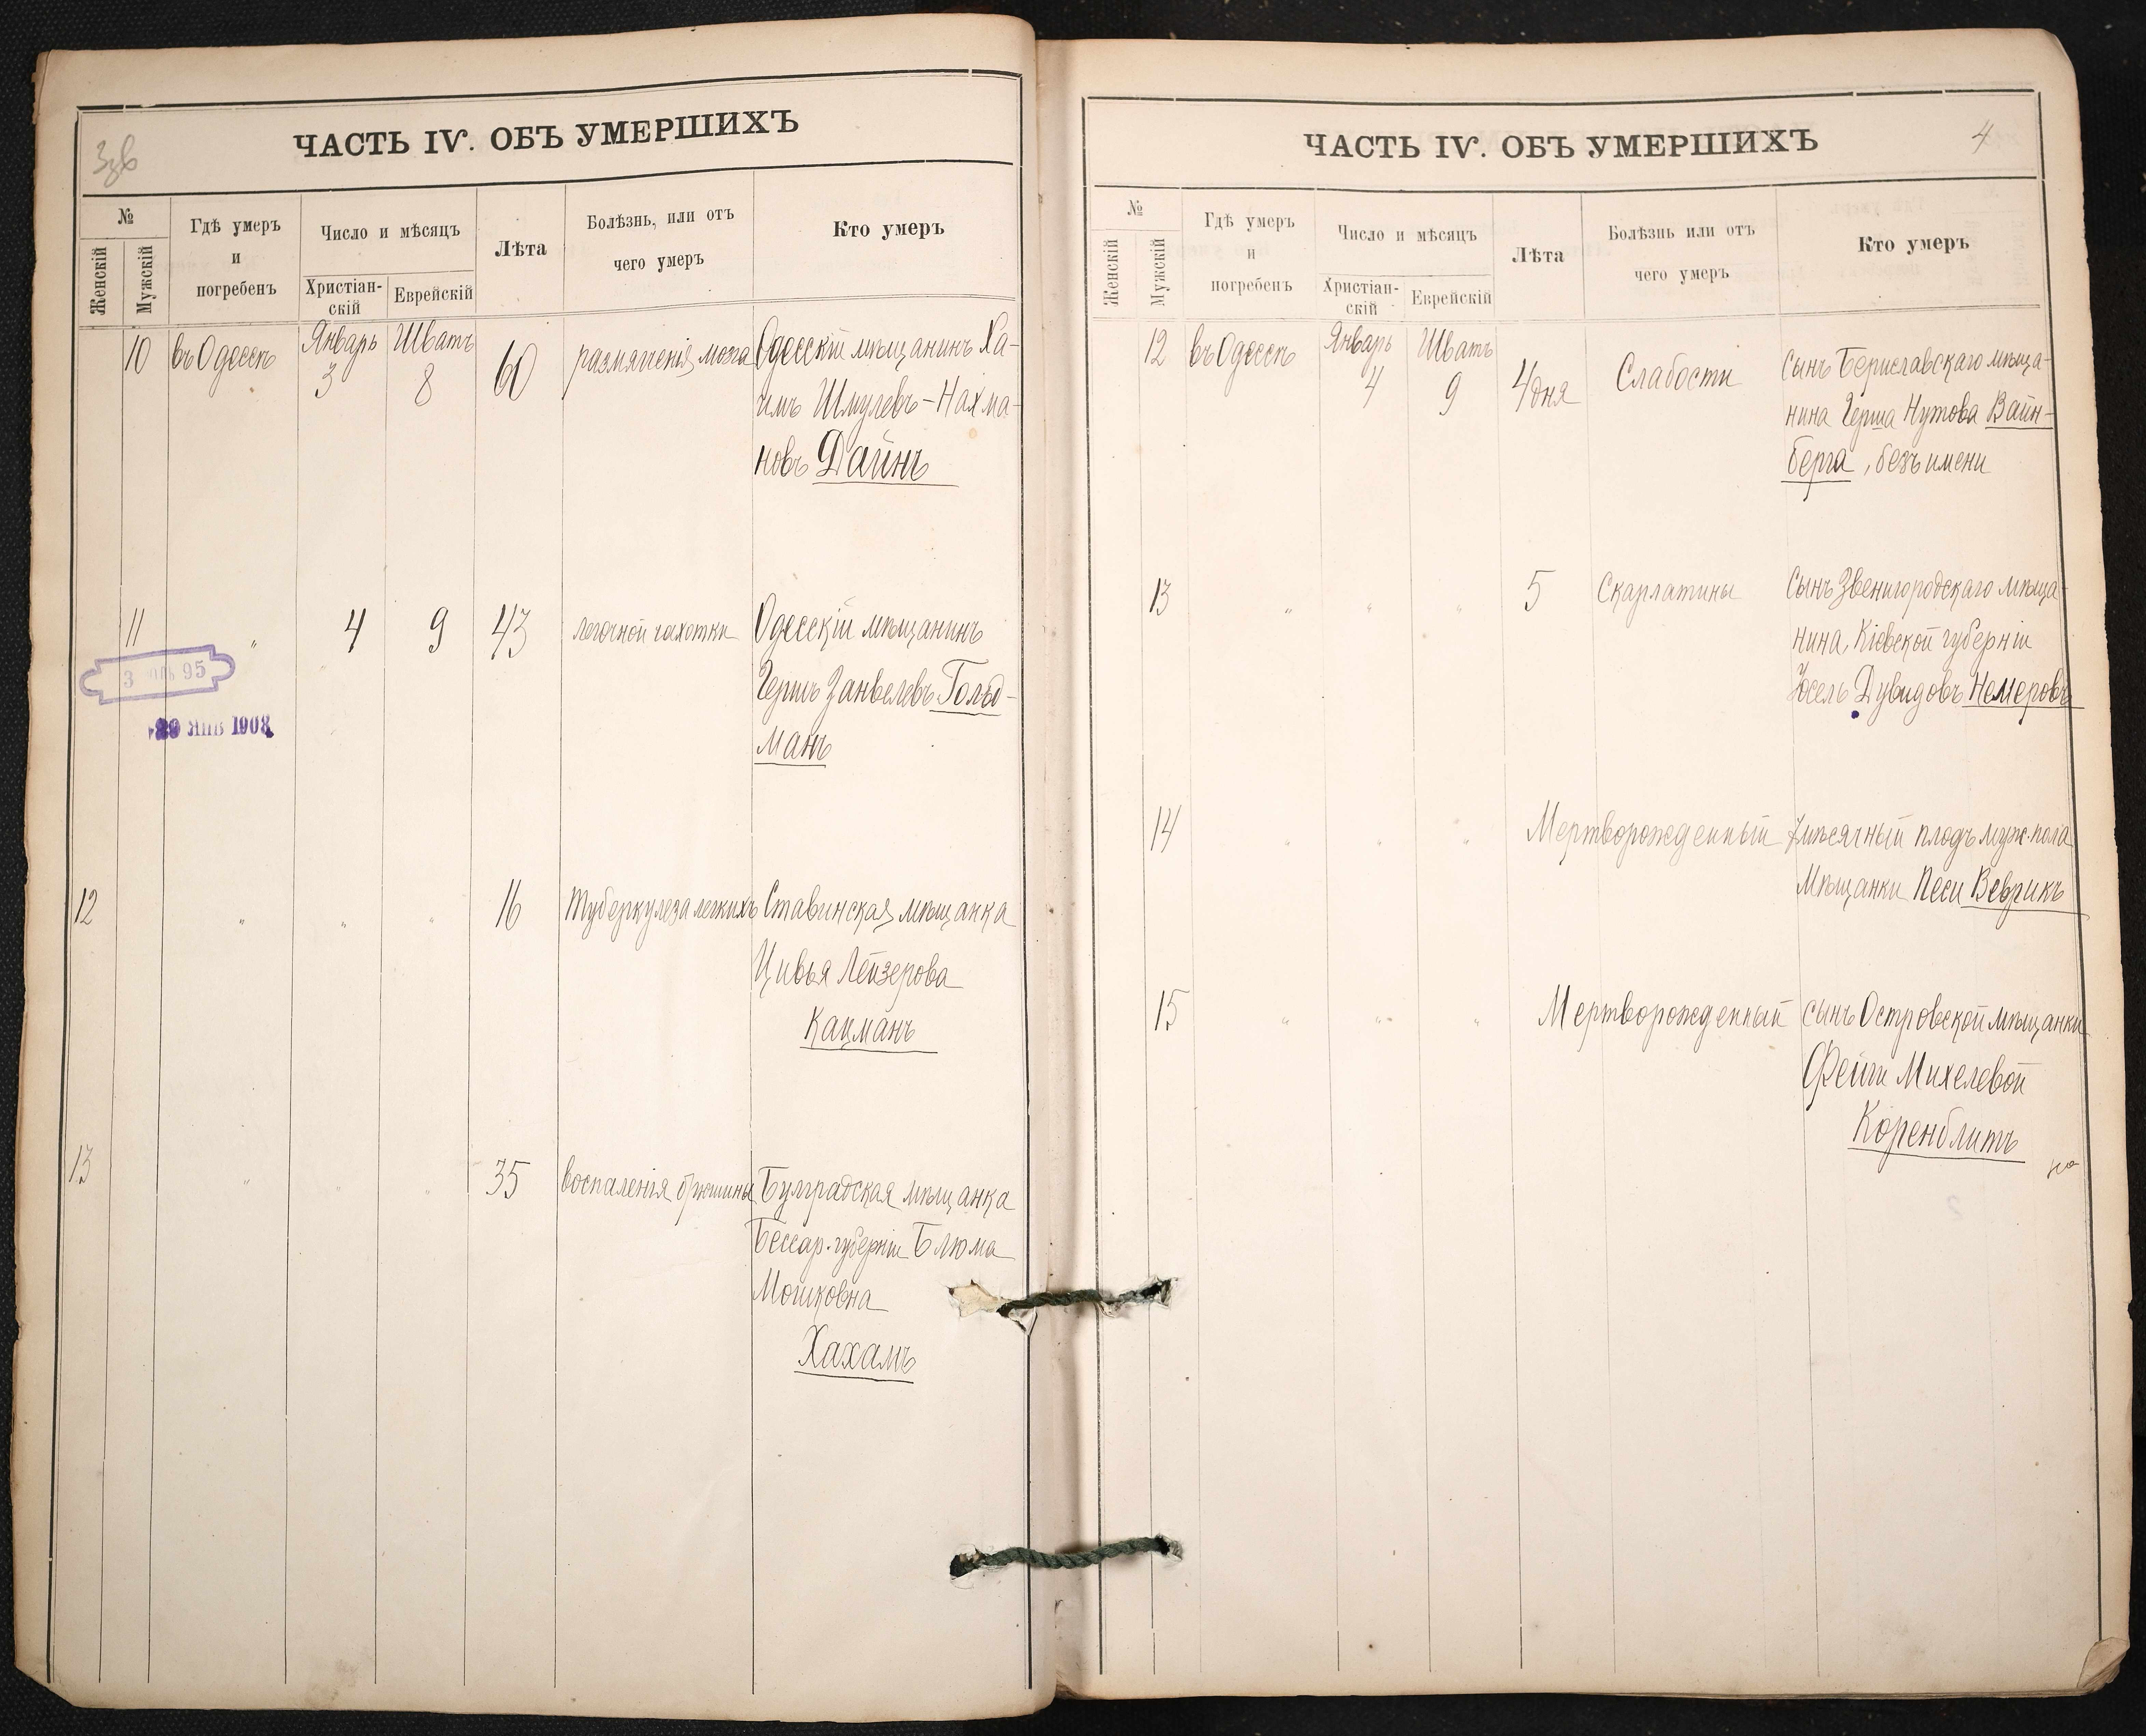 Ззв
ЧАСТЬ IV. ОБЪ УМЕРШИХЪ
№
Женскій
Мужскій
Гдѣ умеръ
и
погребенъ
Число и мѣсяцъ
Христіан-
скій
Еврейскій
Лѣта
Болѣзнь, или отъ
чего умеръ
Кто умеръ
10 въ Одессѣ Январь 3 Шватъ 8 60 размягченія мозга Одесскій мѣщанинъ Ха-
имъ Шмулевъ-Нахма-
новъ Дайнъ
11 " 4 9 43 легочной чахотки Одесскій мѣщанинъ
Гершъ Занвелевъ Гольд-
манъ
3 95
ЯНВ 1908
12 " " " 16 туберкулеза легкихъ Ставинская мѣщанка
Цивья Лейзерова
Кацманъ
13 " " " 35 воспаленія брюшины Булградская мѣщанка
Бессар. губерніи Блюма
Мошковна
Хахамъ
ЧАСТЬ IV. ОБЪ УМЕРШИХЪ
4
№
Женскій
Мужскій
Гдѣ умеръ
и
погребенъ
Число и мѣсяцъ
Христіан-
скій
Еврейскій
Лѣта
Болѣзнь или отъ
чего умеръ
Кто умеръ
12 въ Одессѣ Январь 4 Шватъ 9 4 дня Слабости Сынъ Бериславскаго мѣща-
нина Герша Нутова Вайн-
берга, безъ имени
13 " " " 5 Скарлатины Сынъ Звенигородскаго мѣща-
нина, Кіевской губерніи
Іосель Дувидовъ Немеровъ
14 " " " Мертворожденный 7 мѣсячный плодъ муж. пола
Мѣщанки Песи Веврикъ
15 " " " Мертворожденный сынъ Островской мѣщанки
Фейги Михелевой
Коренблитъ